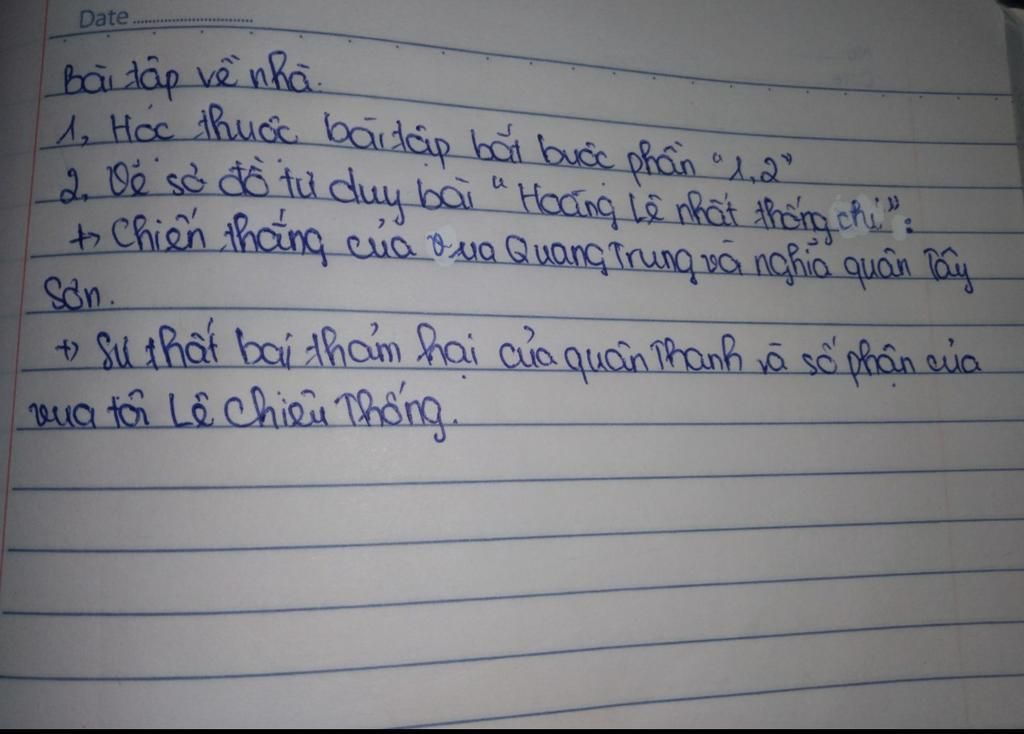 Date
Bài tập về nhà.
1, Học thuộc bài tập bắt buộc phần "1,2"
2, Vẽ sơ đồ tư duy bài "Hoàng Lê nhất thống chí":
+> Chiến thắng của vua Quang Trung và nghĩa quân Tây
Sơn.
+> Sự thất bại thảm hại của quân Thanh và số phận của
vua tôi Lê Chiêu Thống.